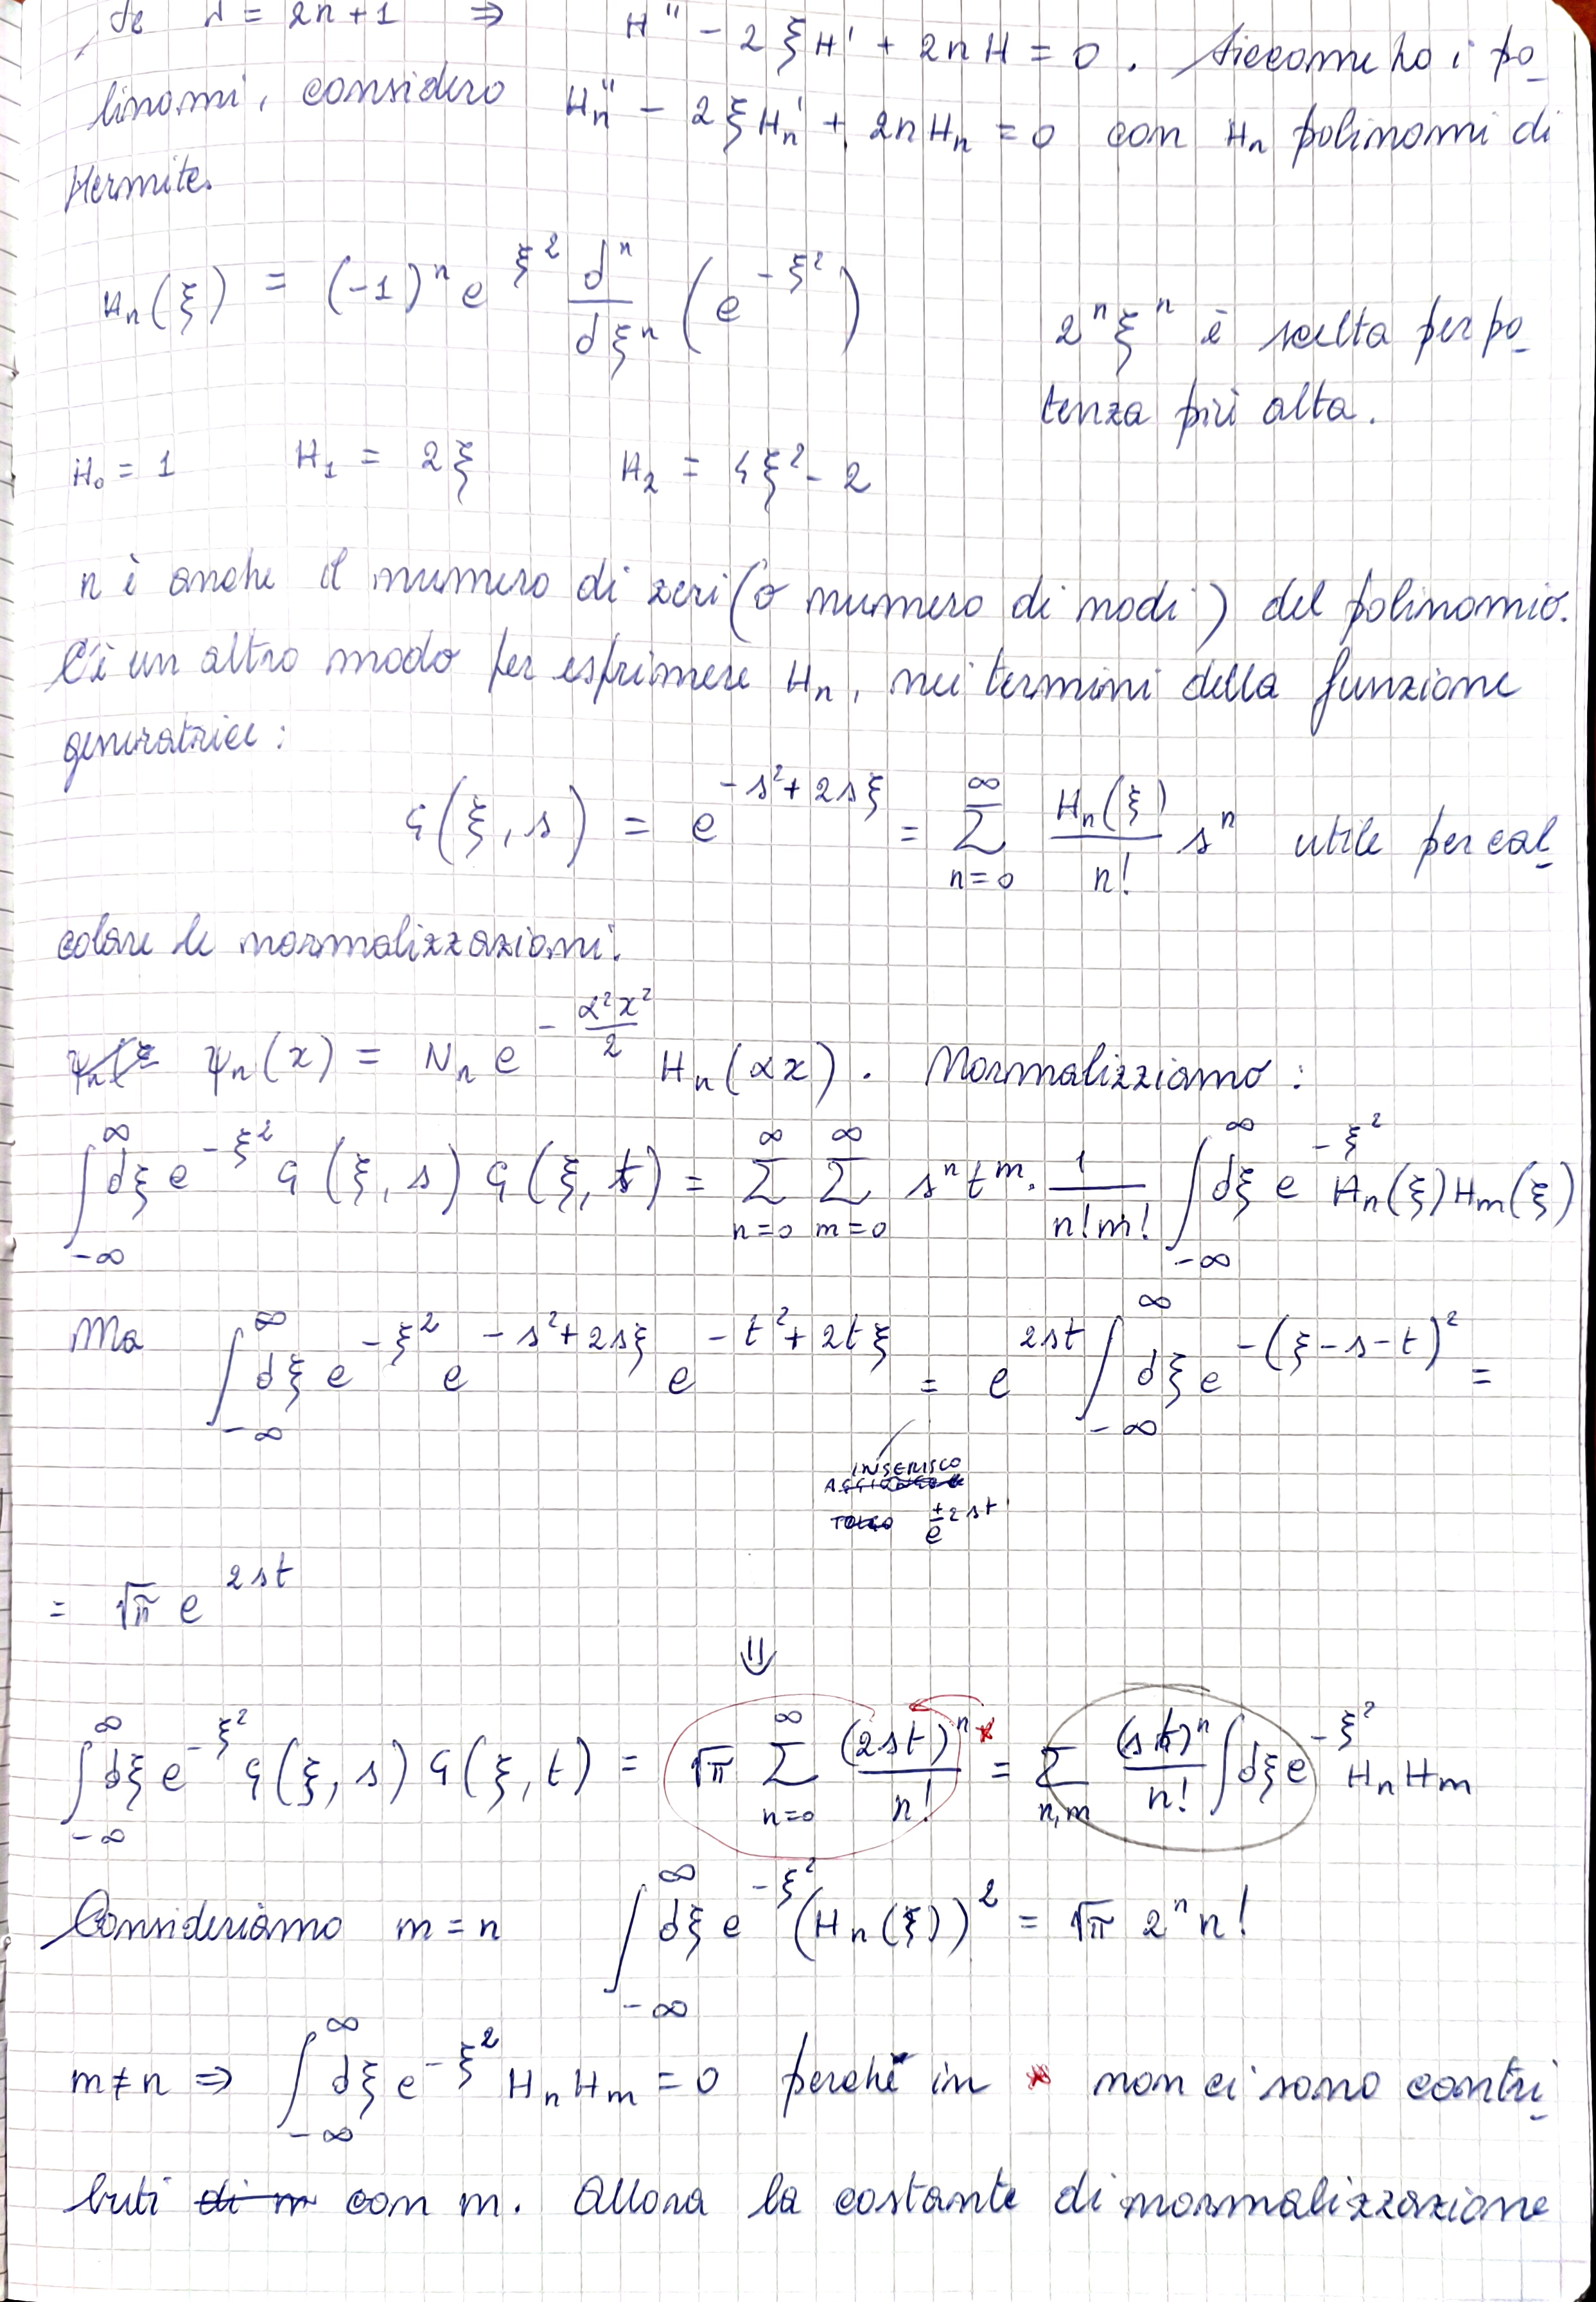 Se λ = 2n+1 ⇒ H'' - 2ξH' + 2nH = 0. Siccome ho i po_
linomi, considero Hn'' - 2ξHn' + 2nHn = 0 con Hn polinomi di
Hermite.
Hn(ξ) = (-1)^n e^{ξ^2} d^n/dξ^n (e^{-ξ^2})
2^n ξ^n è scelta per po_
tenza più alta.
H0 = 1 H1 = 2ξ H2 = 4ξ^2 - 2
n è anche il numero di zeri (o numero di nodi) del polinomio.
C'è un altro modo per esprimere Hn, nei termini della funzione
generatrice:
G(ξ, s) = e^{-s^2+2sξ} = Σ_{n=0}^{∞} Hn(ξ)/n! s^n utile per cal_
colare le normalizzazioni.
ψn(ξ ψn(x) = Nn e^{-α^2x^2/2} Hn(αx). Normalizziamo:
∫_{-∞}^{∞} dξ e^{-ξ^2} G(ξ, s) G(ξ, t) = Σ_{n=0}^{∞} Σ_{m=0}^{∞} s^n t^m · 1/n!m! ∫_{-∞}^{∞} dξ e^{-ξ^2} Hn(ξ)Hm(ξ)
Ma ∫_{-∞}^{∞} dξ e^{-ξ^2} e^{-s^2+2sξ} e^{-t^2+2tξ} = e^{2st} ∫_{-∞}^{∞} dξ e^{-(ξ-s-t)^2} =
INSERISCO
TOLGO e^{±2st}
= √π e^{2st}
⇓
∫_{-∞}^{∞} dξ e^{-ξ^2} G(ξ, s) G(ξ, t) = √π Σ_{n=0}^{∞} (2st)^n/n! * = Σ_{n,m} (st)^n/n! ∫ dξ e^{-ξ^2} Hn Hm
Consideriamo m = n ∫_{-∞}^{∞} dξ e^{-ξ^2} (Hn(ξ))^2 = √π 2^n n!
m ≠ n ⇒ ∫_{-∞}^{∞} dξ e^{-ξ^2} Hn Hm = 0 perché in * non ci sono contri_
buti di m con m. Allora la costante di normalizzazione